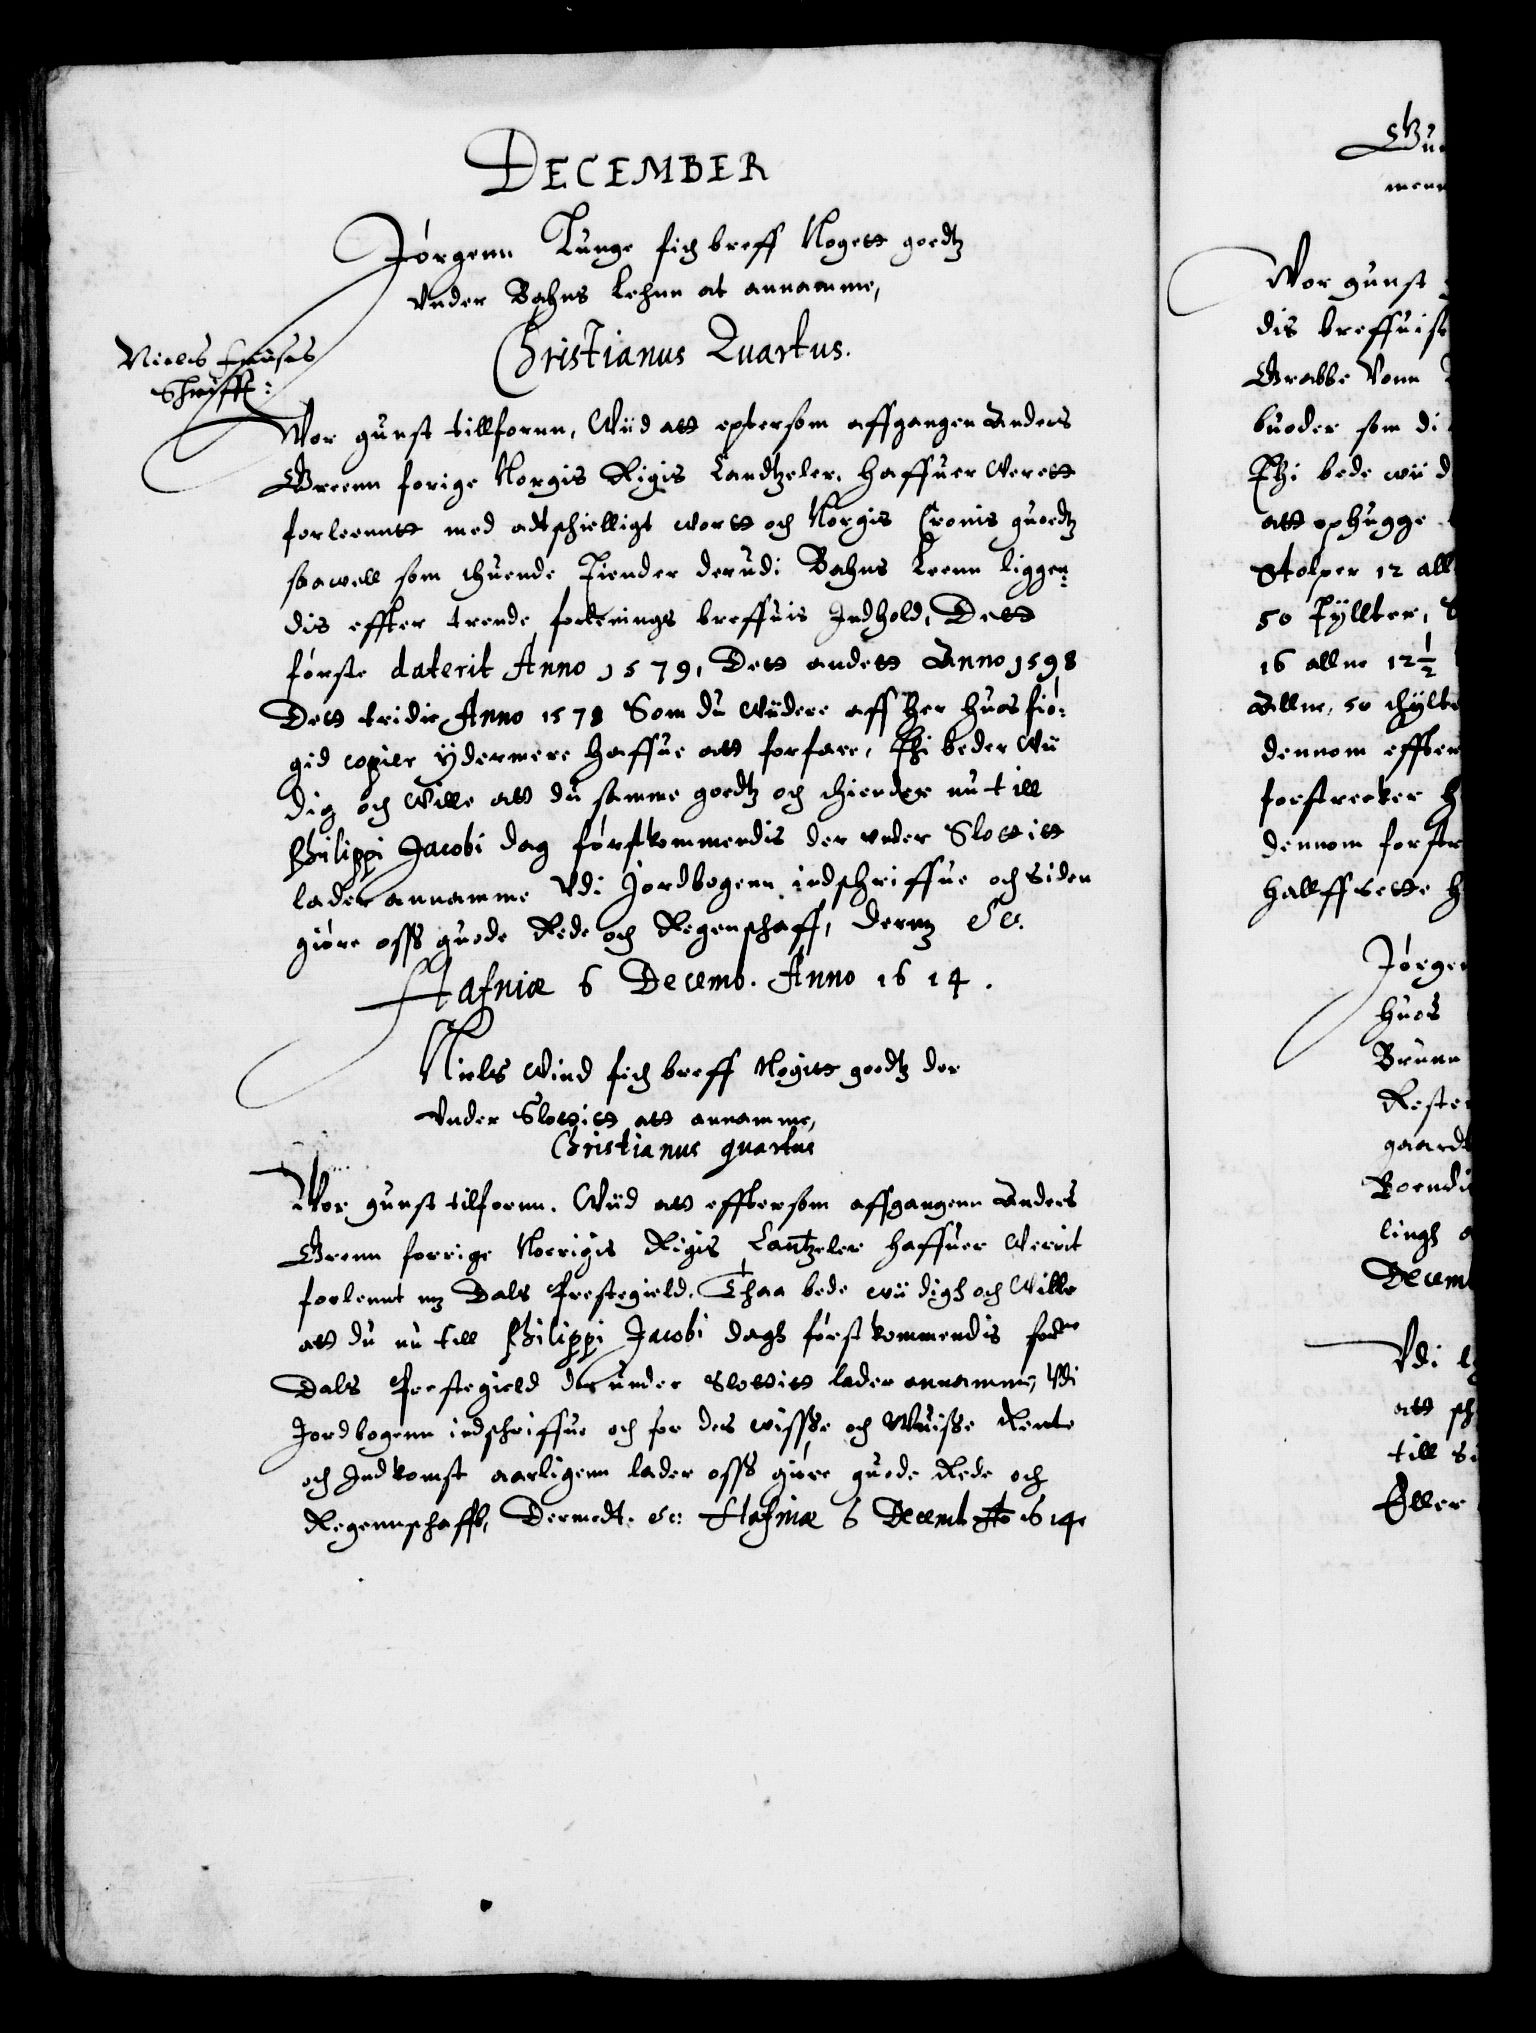 DECEMBER
Jørgenn Lunge fich breff Nogett goedtz
vnder Bahus Lehnn at annamme,
Christianus Quartus.
Niels
Schrifft:
Wor gunst tillfornn, Wiid att eptersom affgangen Anders
Greenn forige Norgis Rigis Candtzeler, haffuer Werett
forleenntt med adtschielligt wortt och Norgis Cronis guodtz
saawell som thuende Tiender derudi Bahus Leenn liggen-
dis effter trende forlenings breffuis Indhold, Dett
første daterit Anno 1579, Dett andett Anno 1598
Dett tridie Anno 1578 Som du Wiidere aff her huos fiø-
gid copier ydermere haffue att forfare, Thi beder Wii
dig och Wille att du samme goedtz och thiender nu till
Philippi Jacobi dag førstkommendis der vnder Slottitt
lader annamme Vdi Jordbogenn indschriffue och siden
giøre oss guode Rede och Regenschaff, dermz &c.
Hafniæ 6 Decemb. Anno 1614.
Niels Wind fich breff Nogitt goedtz der
Vnder Slottitt att annamme,
Christianus quartus
Wor gunst tilfornn. Wiid att efftersom affgangenn Anders
Grenn forrige Norrigis Rigis Cantzeler haffuer Werrit
forlennt mz Dals Prestegield. Thaa bede wii digh och Wille
att du nu till Philippi Jacobi dagh først kommendis forne
Dals Prestegield der under Slottitt lader annamme, Vdi
Jordbogenn indschriffue och for des wisse och Wuisse Rente
och Indkomst aarligenn lader oss giøre guode Rede och
Regennschafft, Dermedt. &c: Hafniæ 6 Decemb Ao 1614.
Wor gunst
dis breffuis
Grabbe Vonn
buoder som di
Thi bede wii d
att ophugge
Stolper 12 all
50 Tyllter,
16 allne 12½
Allne, 50 thylt
dennom effter
forstrecker h
dennom forstr
hallffsette h
Jørgen
huos
Brunn
Reste
gaard
Boendi
lingh
Decemb
Vdi
att sch
till
Eller